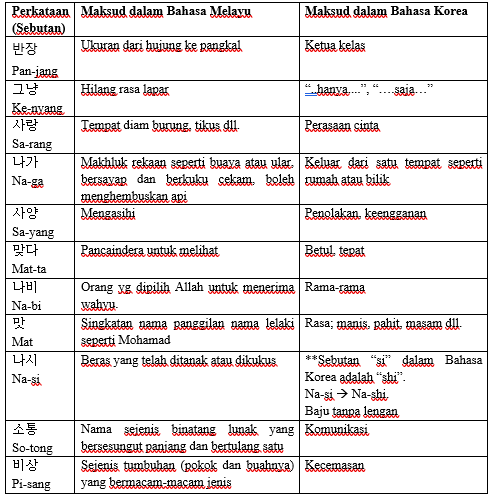 Perkataan (Sebutan) | Maksud dalam Bahasa Melayu | Maksud dalam Bahasa Korea
반장
Pan-jang
Ukuran dari hujung ke pangkal
Ketua kelas
그냥
Ke-nyang
Hilang rasa lapar
“...hanya....”, “….saja…”
사랑
Sa-rang
Tempat diam burung, tikus dll.
Perasaan cinta
나가
Na-ga
Makhluk rekaan seperti buaya atau ular,
bersayap dan berkuku cekam, boleh
menghembuskan api
Keluar dari satu tempat seperti
rumah atau bilik
사양
Sa-yang
Mengasihi
Penolakan, keengganan
맞다
Mat-ta
Pancaindera untuk melihat
Betul, tepat
나비
Na-bi
Orang yg dipilih Allah untuk menerima
wahyu.
Rama-rama
맛
Mat
Singkatan nama panggilan nama lelaki
seperti Mohamad
Rasa; manis, pahit, masam dll.
나시
Na-si
Beras yang telah ditanak atau dikukus
**Sebutan “si” dalam Bahasa
Korea adalah “shi”.
Na-si → Na-shi.
Baju tanpa lengan
소통
So-tong
Nama sejenis binatang lunak yang
bersesungut panjang dan bertulang satu
Komunikasi
비상
Pi-sang
Sejenis tumbuhan (pokok dan buahnya)
yang bermacam-macam jenis
Kecemasan